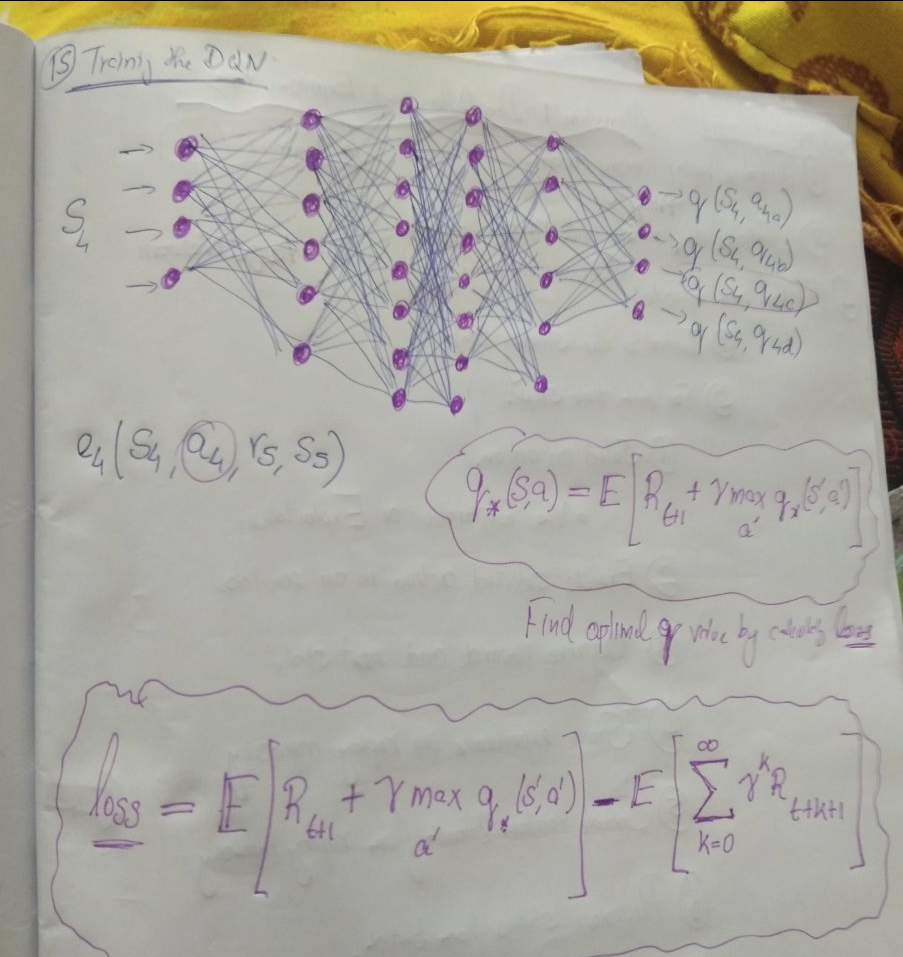 15 Training the DQN
S₄
→ q(S₄, a₄ₐ)
→ q(S₄, a₄b)
→ q(S₄, a₄c)
→ q(S₄, a₄d)
e₄(S₄, a₄, r₅, S₅)
q*(s,a) = E[R_{t+1} + γ max_{a'} q*(s',a')]
Find optimal q value by calculating loss
loss = E[R_{t+1} + γ max_{a'} q*(s',a')] - E[∑_{k=0}^{∞} γ^k R_{t+k+1}]